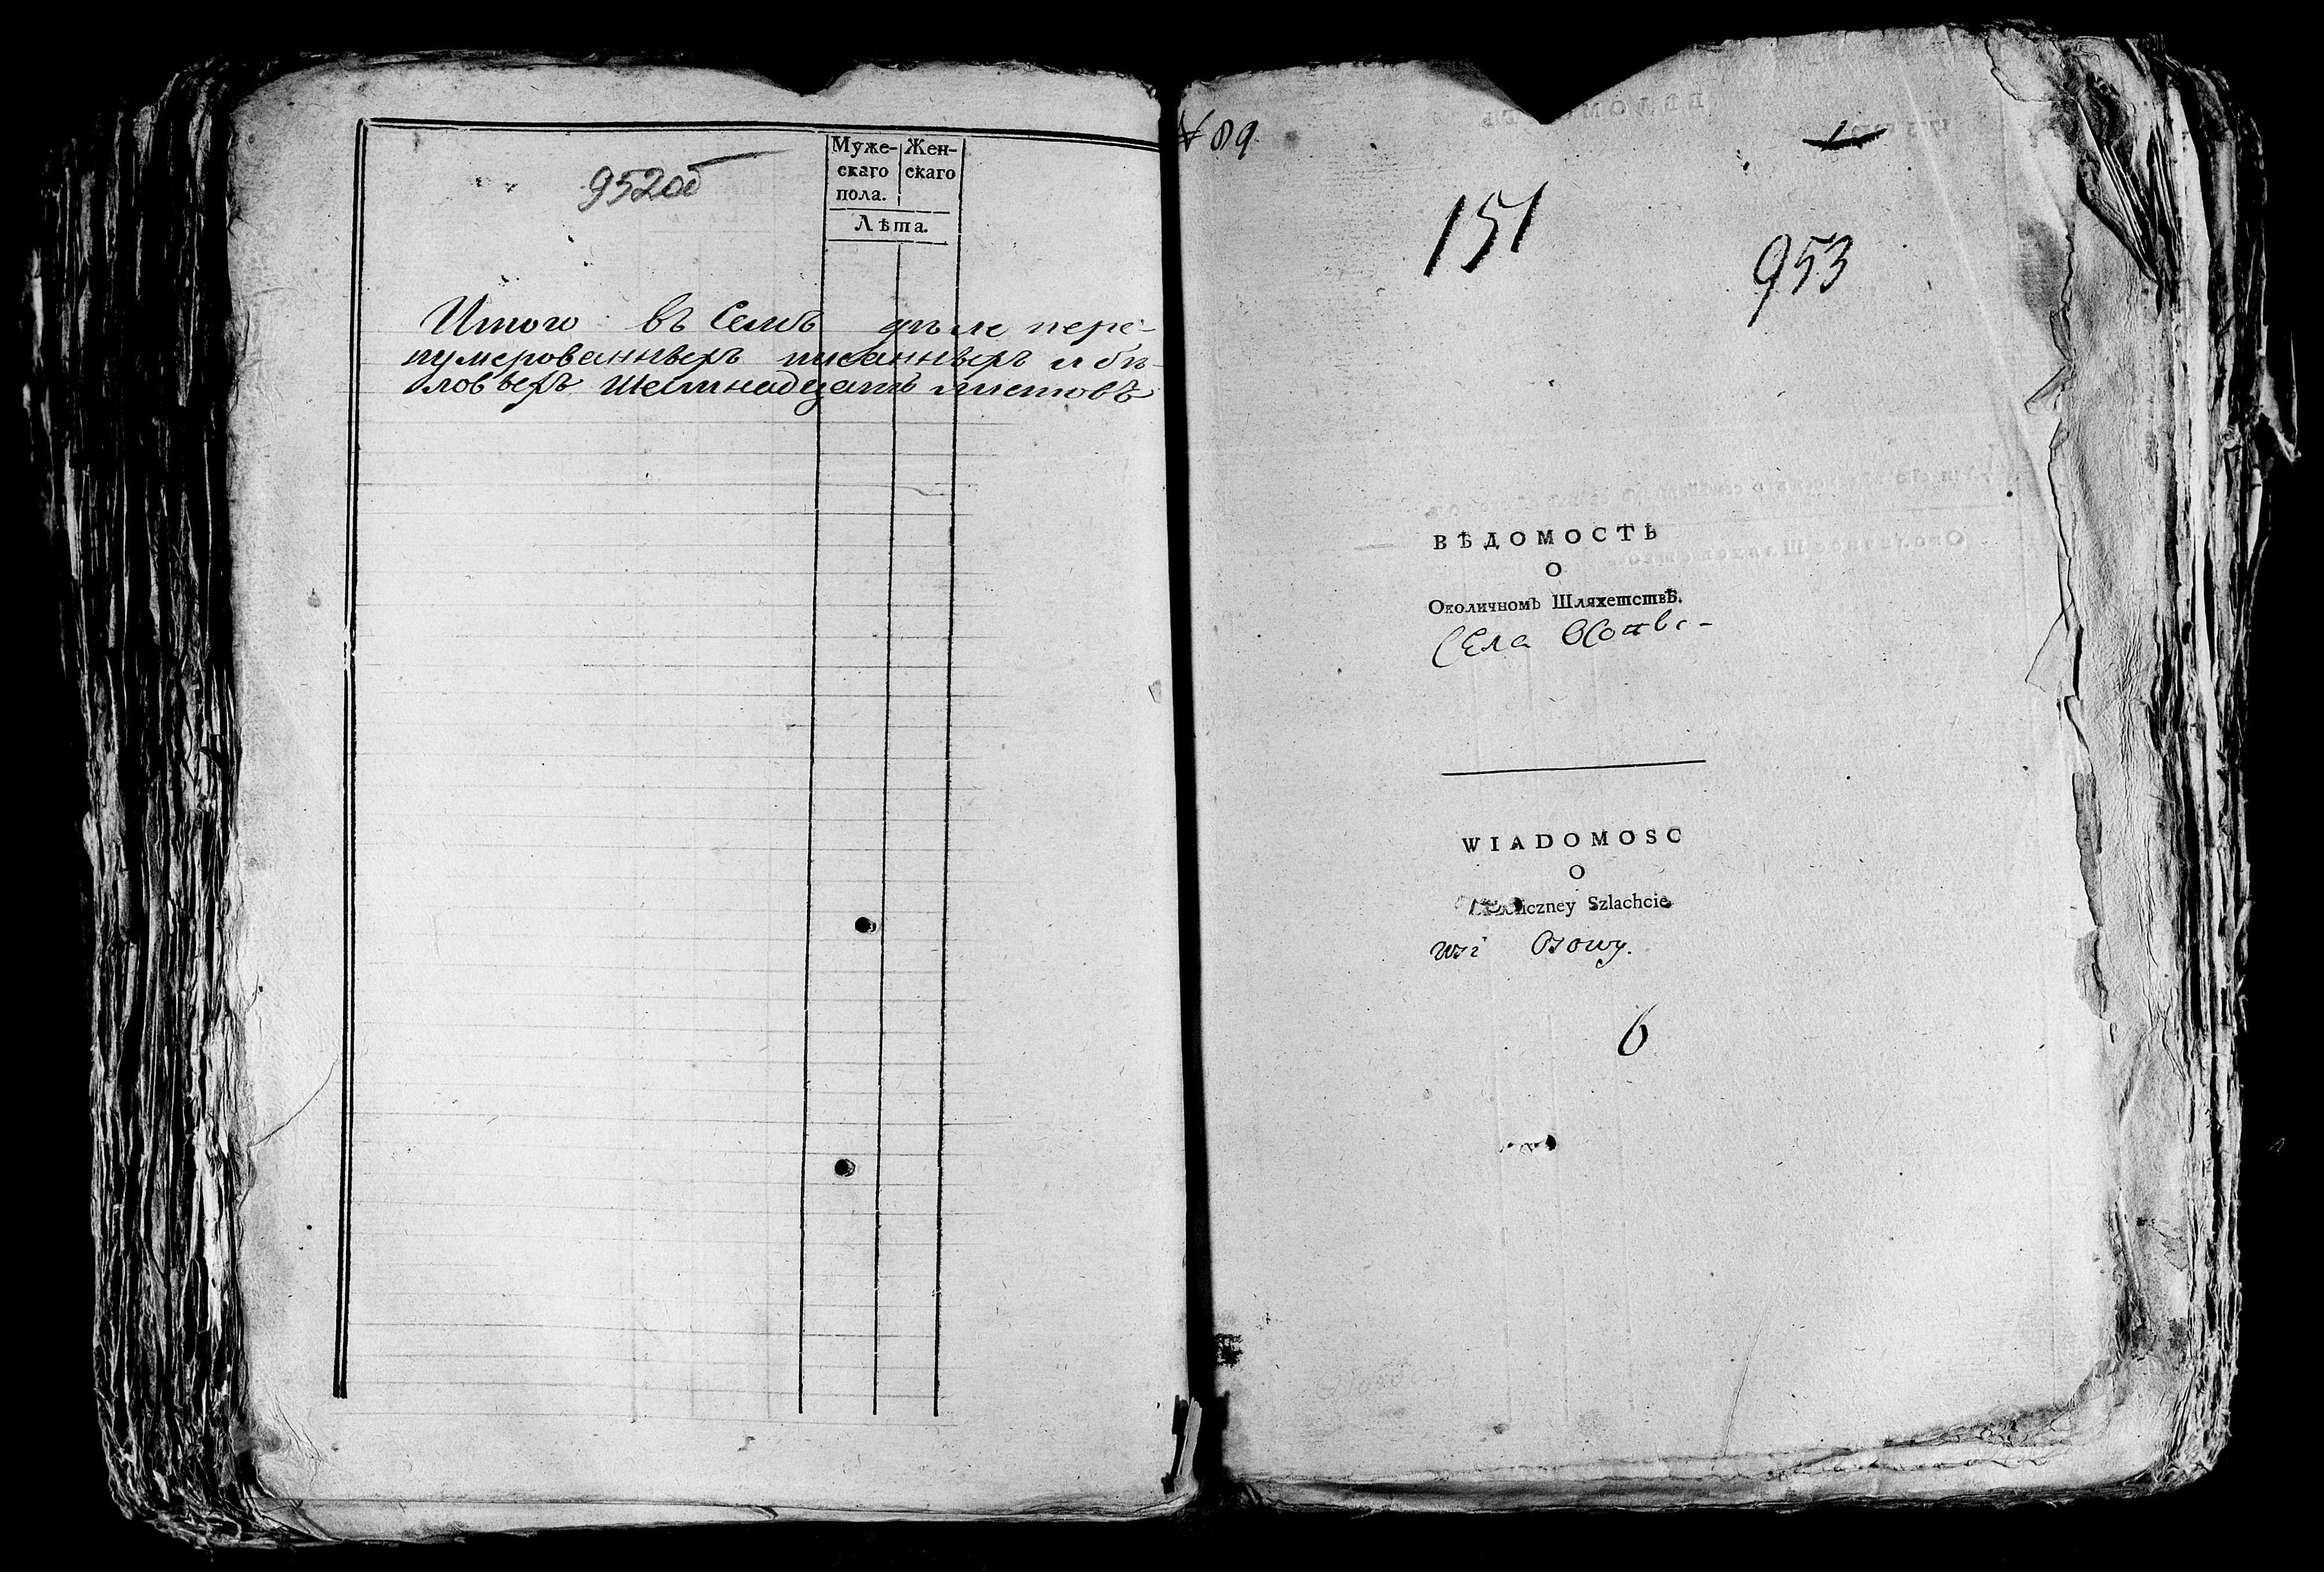 952об
Муже- Жен-
скаго скаго
пола.
Лѣта.
Итого въ Семъ дѣле пере-
нумерованныхъ писанныхъ и бѣ-
ловыхъ Шестнадцать листовъ
№ 89
1
151
953
ВѢДОМОСТЬ
О
Околичномъ Шляхетствѣ.
Села
WIADOMOSC
O
Szlachcie
wsi Osowy.
6